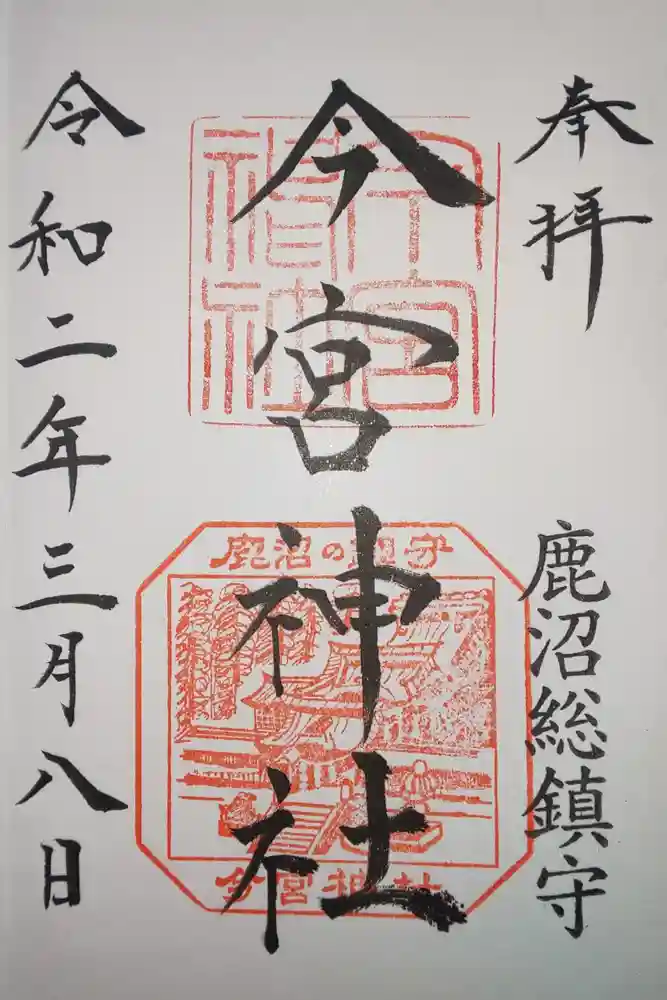 奉拝
鹿沼総鎮守
今宮神社
令和二年三月八日
鹿沼の鎮守
今宮神社